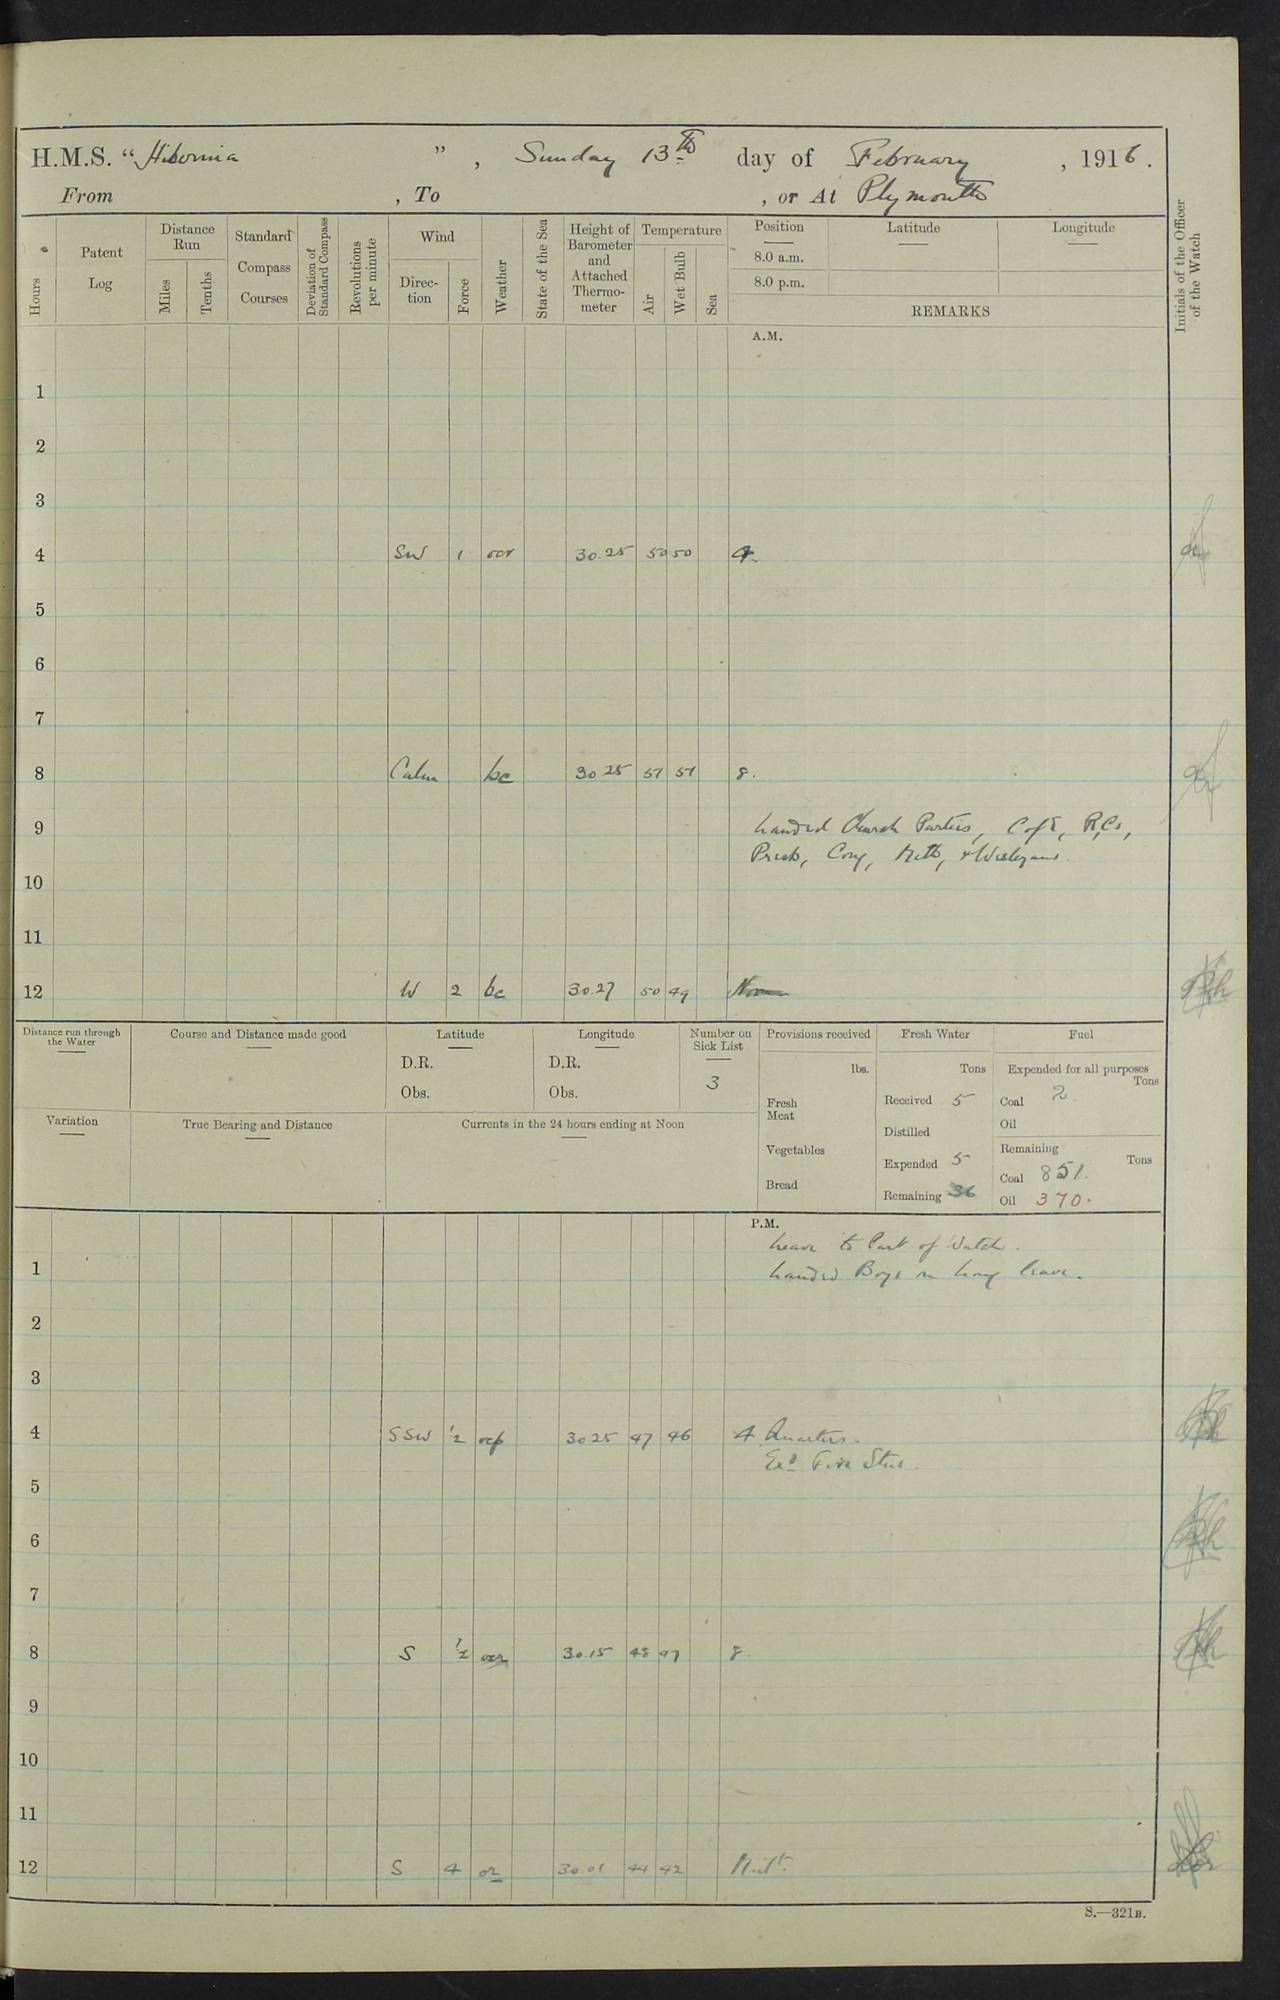 H.M.S. "Hibernia", Sunday 13th day of February, 1916.
From , To , or At Plymouth
Hours
Patent Log
Distance Run
Miles
Tenths
Standard Compass Courses
Deviation of Standard Compass
Revolutions per minute
Wind
Direction
Force
Weather
State of the Sea
Height of Barometer and Attached Thermometer
Temperature
Air
Wet Bulb
Sea
Position
Latitude
Longitude
8.0 a.m.
8.0 p.m.
REMARKS
Initials of the Officer of the Watch
A.M.
1
2
3
4 SW 1 ocr 30.25 50 50 4.
5
6
7
8 Calm bc 30.25 51 51 8.
9 Landed Church Parties, C of E, R.Cs,
Presb, Cong, Meth, & Wesleyans.
10
11
12 W 2 bc 30.27 50 49 Noon
Distance run through the Water
Course and Distance made good
Latitude
D.R.
Obs.
Longitude
D.R.
Obs.
Number on Sick List
3
Variation
True Bearing and Distance
Currents in the 24 hours ending at Noon
Provisions received
lbs.
Fresh Meat
Vegetables
Bread
Fresh Water
Tons
Received 5
Distilled
Expended 5
Remaining 36
Fuel
Expended for all purposes
Tons
Coal 2
Oil
Remaining
Tons
Coal 851.
Oil 370.
P.M.
Leave to Part of Watch.
1 Landed Boys on long leave.
2
3
4 SSW 1/2 ocp 30.25 47 46 4 Quarters.
Exd Fire Stns.
5
6
7
8 S 1/2 ocr 30.15 48 47 8.
9
10
11
12 S 4 or 30.01 44 42 Midt.
S.—321B.